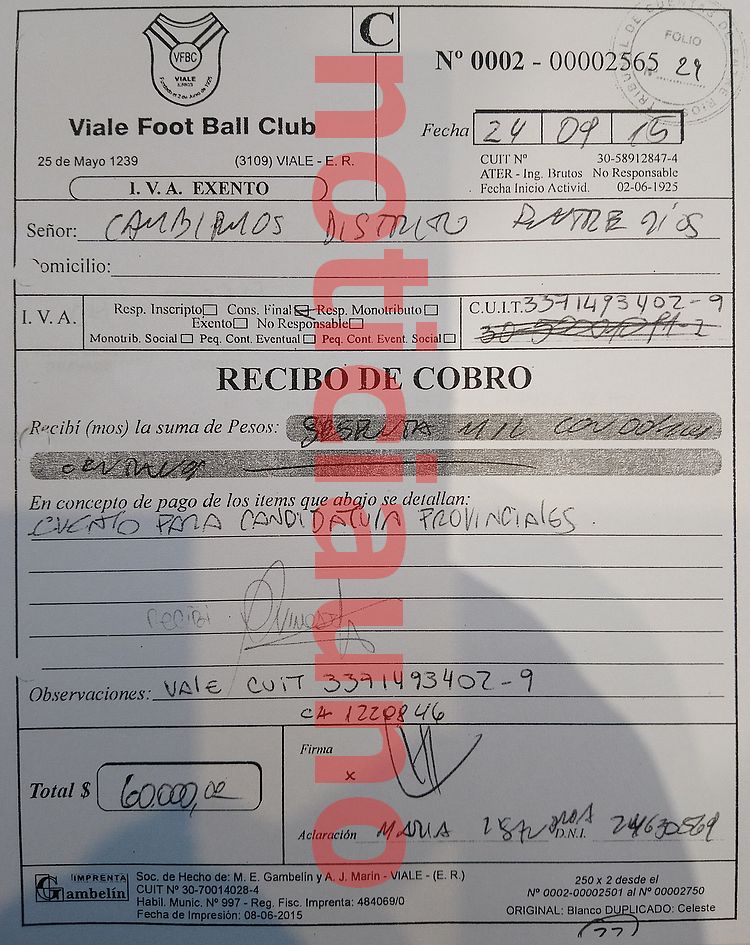 VFBC
VIALE
E.RIOS
Fundado el 2 de Junio de 1925
C
Nº 0002 - 00002565
TRIBUNAL DE CUENTAS DE ENTRE RIOS
FOLIO
Nº 29
Viale Foot Ball Club
Fecha 24 09 15
25 de Mayo 1239 (3109) VIALE - E. R.
I. V. A. EXENTO
CUIT Nº 30-58912847-4
ATER - Ing. Brutos No Responsable
Fecha Inicio Activid. 02-06-1925
Señor: CAMBIEMOS DISTRITO ENTRE RIOS
Domicilio:
I. V. A.
Resp. Inscripto Cons. Final Resp. Monotributo
Exento No Responsable
Monotrib. Social Peq. Cont. Eventual Peq. Cont. Event. Social
C.U.I.T. 3371493402-9
RECIBO DE COBRO
Recibí (mos) la suma de Pesos: SESENTA MIL CON 00/100
En concepto de pago de los items que abajo se detallan:
EVENTO PARA CANDIDATURA PROVINCIALES.
Recibí
Observaciones: VALE CUIT 3371493402-9
C4 1220846
Firma
x
Total $ 60.000,00
Aclaración MARIA
D.N.I. 24630569
IMPRENTA
Gambelín
Soc. de Hecho de: M. E. Gambelín y A. J. Marin - VIALE - (E. R.)
CUIT Nº 30-70014028-4
Habil. Munic. Nº 997 - Reg. Fisc. Imprenta: 484069/0
Fecha de Impresión: 08-06-2015
250 x 2 desde el
Nº 0002-00002501 al Nº 00002750
ORIGINAL: Blanco DUPLICADO: Celeste
notidiauno